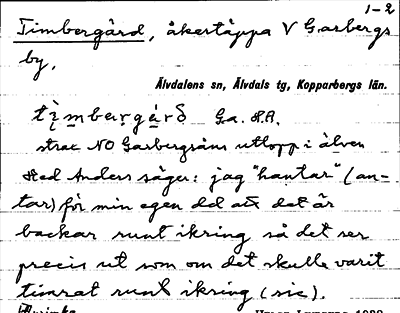 1-2
Timbergård, åkertäppa V Garbergs
by.
Älvdalens sn, Älvdals tg, Kopparbergs län.
Ga. H.A.
strax NO Garbergsåns utlopp i älven
Hed Anders säger: jag "hantar" (an-
tar) för min egen del att det är
backar runt ikring så det ser
precis ut som om det skulle varit
timrat runt ikring (sic).